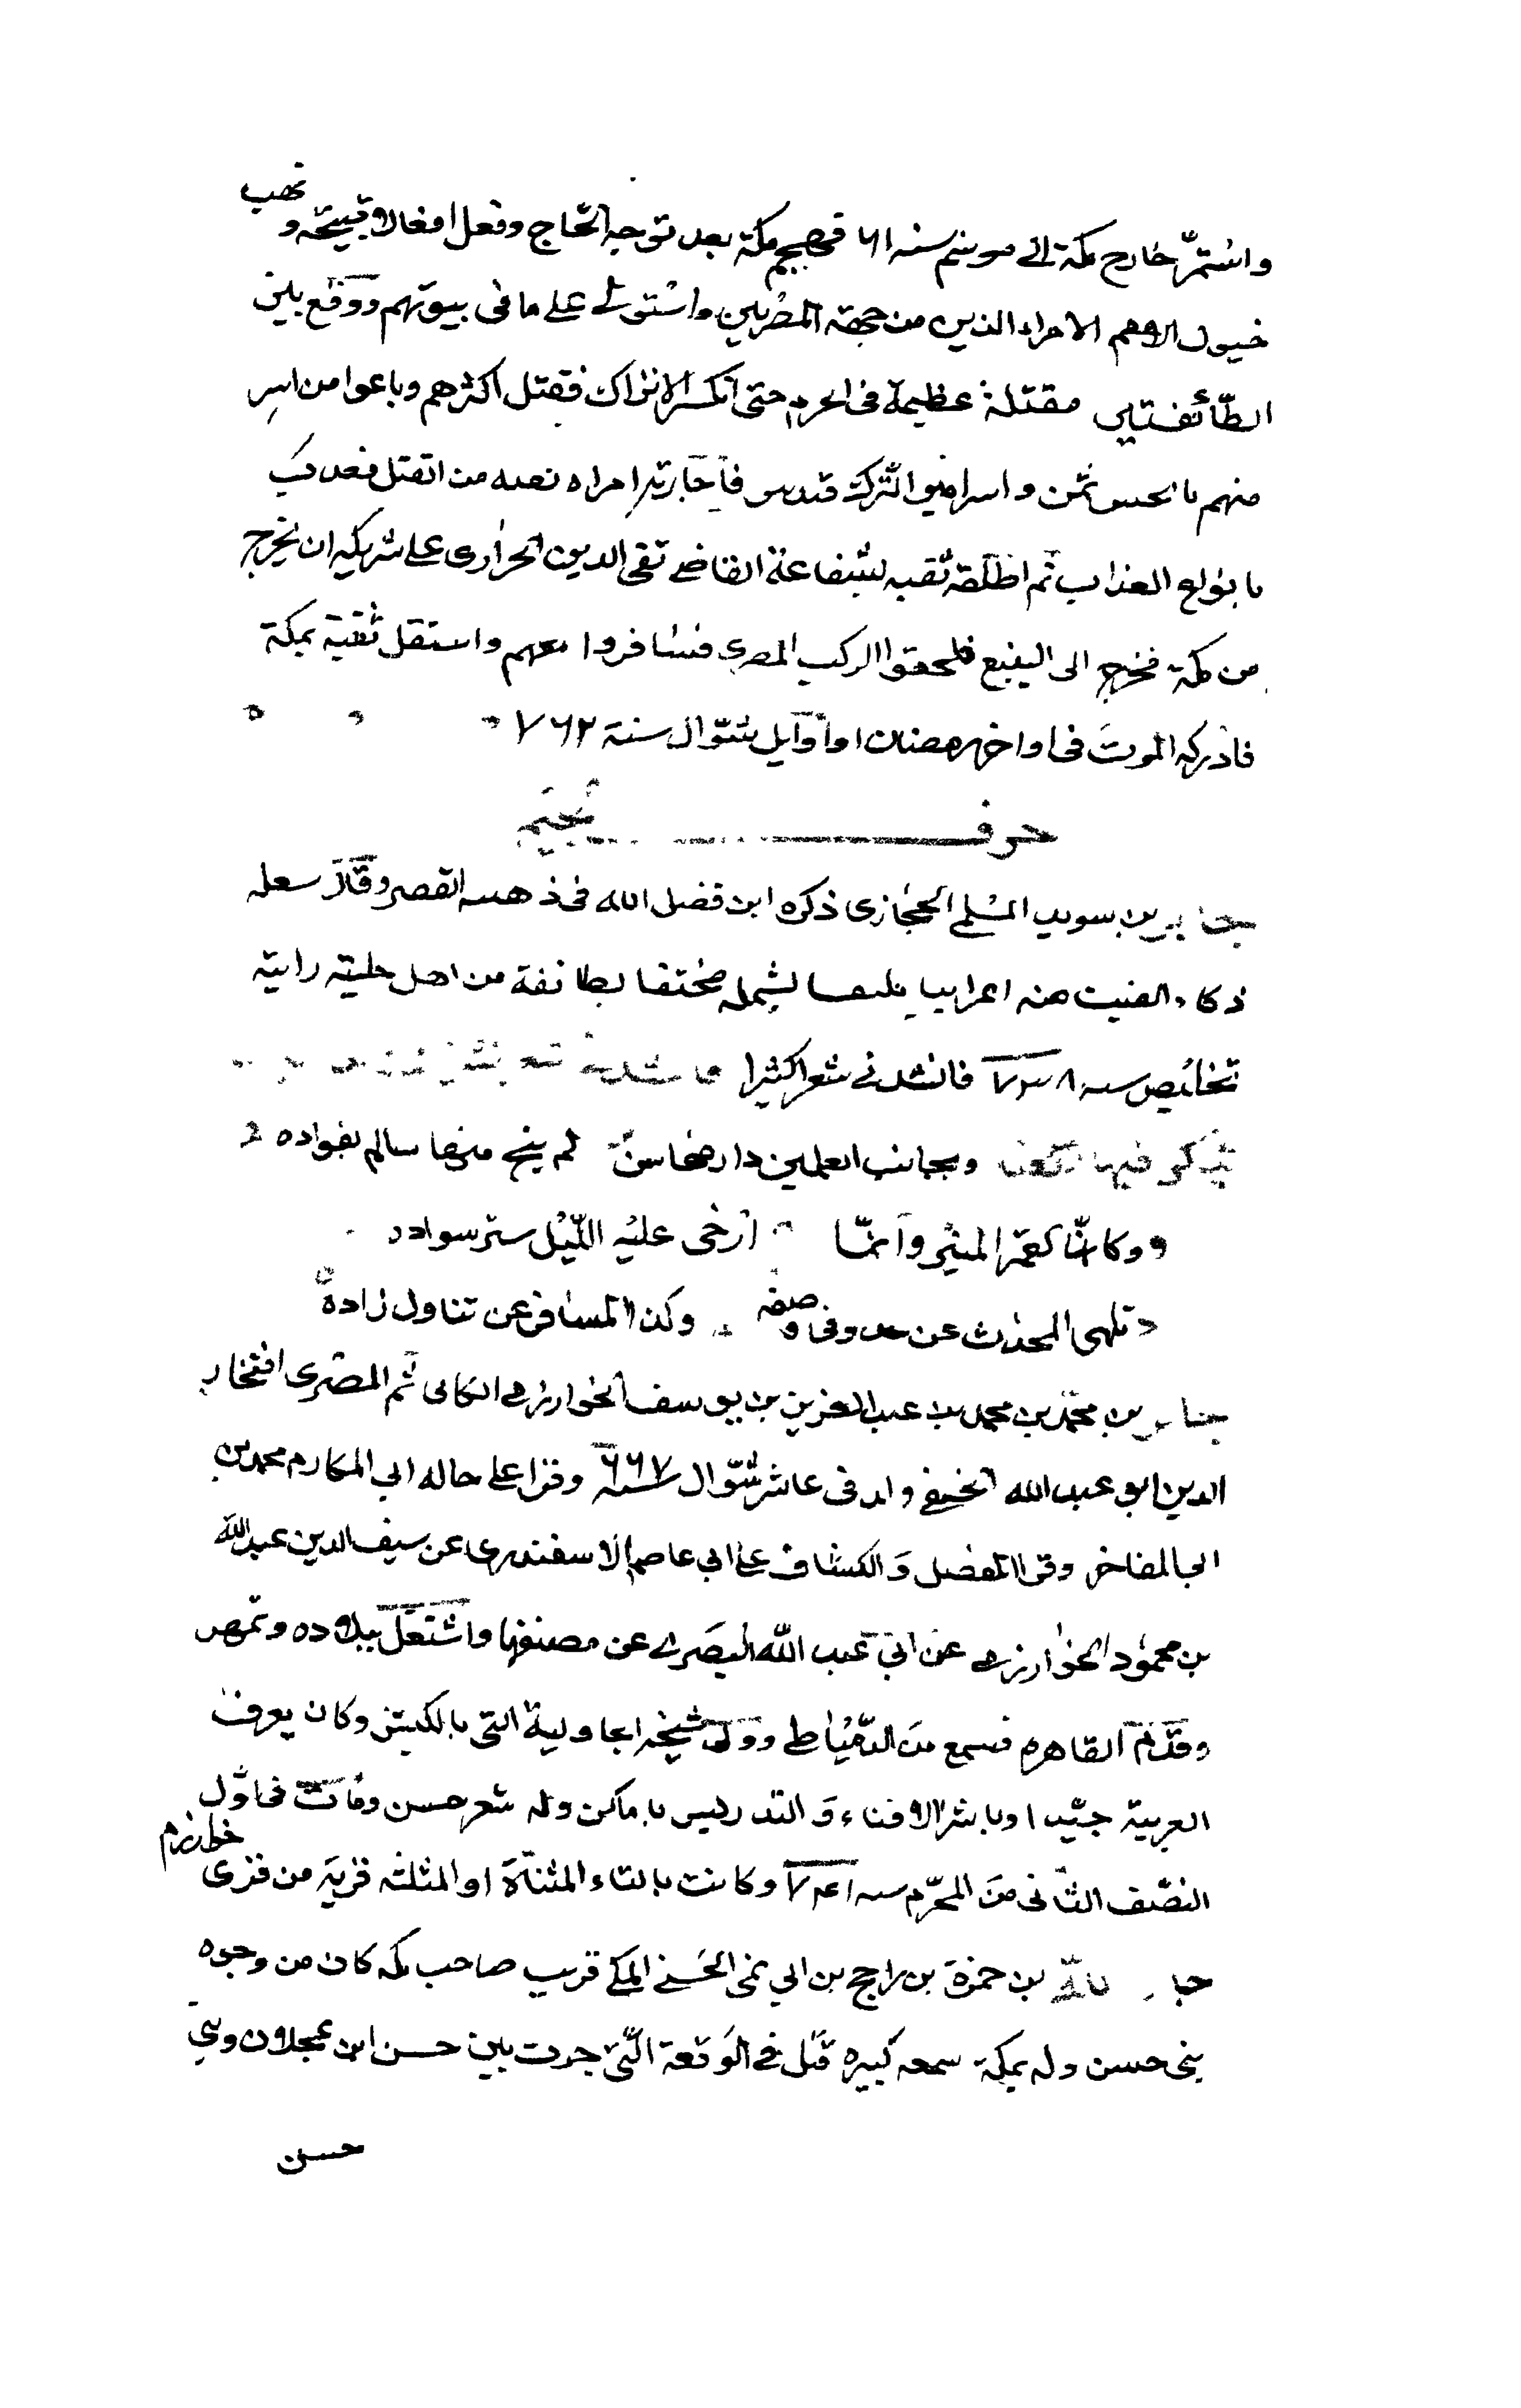 واستمرّ خارج مكة الى موسم سنه ٦١ فهجم مكة بعد توجه الحاج وفعل افعالا قبيحه ونهب
خيول الامراء الذين من جهة المصريين واستولى على ما فى بيوتهم ووقع بين
الطّائفتين مقتلة عظيمة فى الحرم حتى انكسر الاتراك فقتل اكثرهم وباعوا من اسر
منهم بابخس ثمن واسر امير الترك قندس فاجارته امراه من القتل فعذب
بانواع العذاب ثم اطلقه ثقبه بشفاعة القاضى تقى الدين الحرازى على شريكه ان يخرج
من مكة فخرج الى الينبع فلحقوا الركب المصرى فسافروا معهم واستقل ثقبة بمكة
فادركه الموت فى اواخر رمضان او اوايل شوّال سنة ٧٦٢
حرف الجيم
جابر بن سويد المسلمى الحجازى ذكره ابن فضل الله فى ذهبية القصر وقال
ذكاء الفيت منه اعرابيا بشمله مختفا بطائفة من اهل حليته رايته
بخليص سنه ٧٣٨ فانشدنى شعرا كثيرا
فيها وبجانب العلمين دار لم ينج منها سالم بفواده
وكانّما القمر المنير وانّما ارخى عليه اللّيل ستر سواده
تلهى المحدث عن وفى وصفه وكذا المسافر عن تناول زاده
جابر بن محمّد بن محمد بن عبد العزيز بن يوسف الخوارزمى الكاثى ثم المصرى افتخار
الدين ابو عبد الله الحنفى ولد فى عاشر شوّال سنه ٦٦٧ وقرا على خاله ابى المكارم محمد بن
ابى المفاخر وقرا المفصل والكشاف على ابى عاصم الاسفندرى عن سيف الدين عبد الله
بن محمود الخوارزمى عن ابى عبد الله البصرى عن مصنفها واشتغل ببلاده وتمهر
وقدم القاهرة فسمع من الدّمياطى وولى مشيخه الجاولية التى بالكبش وكان يعرف
العربية جيّدا وباشر الافتاء والتدريس باماكن وله شعر حسن ومات فى اوّل
النصف الثّانى من المحرّم سنه ٧٤١ وكانت بالتاء المثنّاة او المثلثه قرية من قرى خوارزم
جار الله بن حمزة بن راجح بن ابي نمى الحسنى المكى قريب صاحب مكه كان من وجوه
بنى حسن وله بمكة سمعه كبيره قتل فى الوقعة الّتى جرت بين حسن ابن عجلان وبنى
حسن